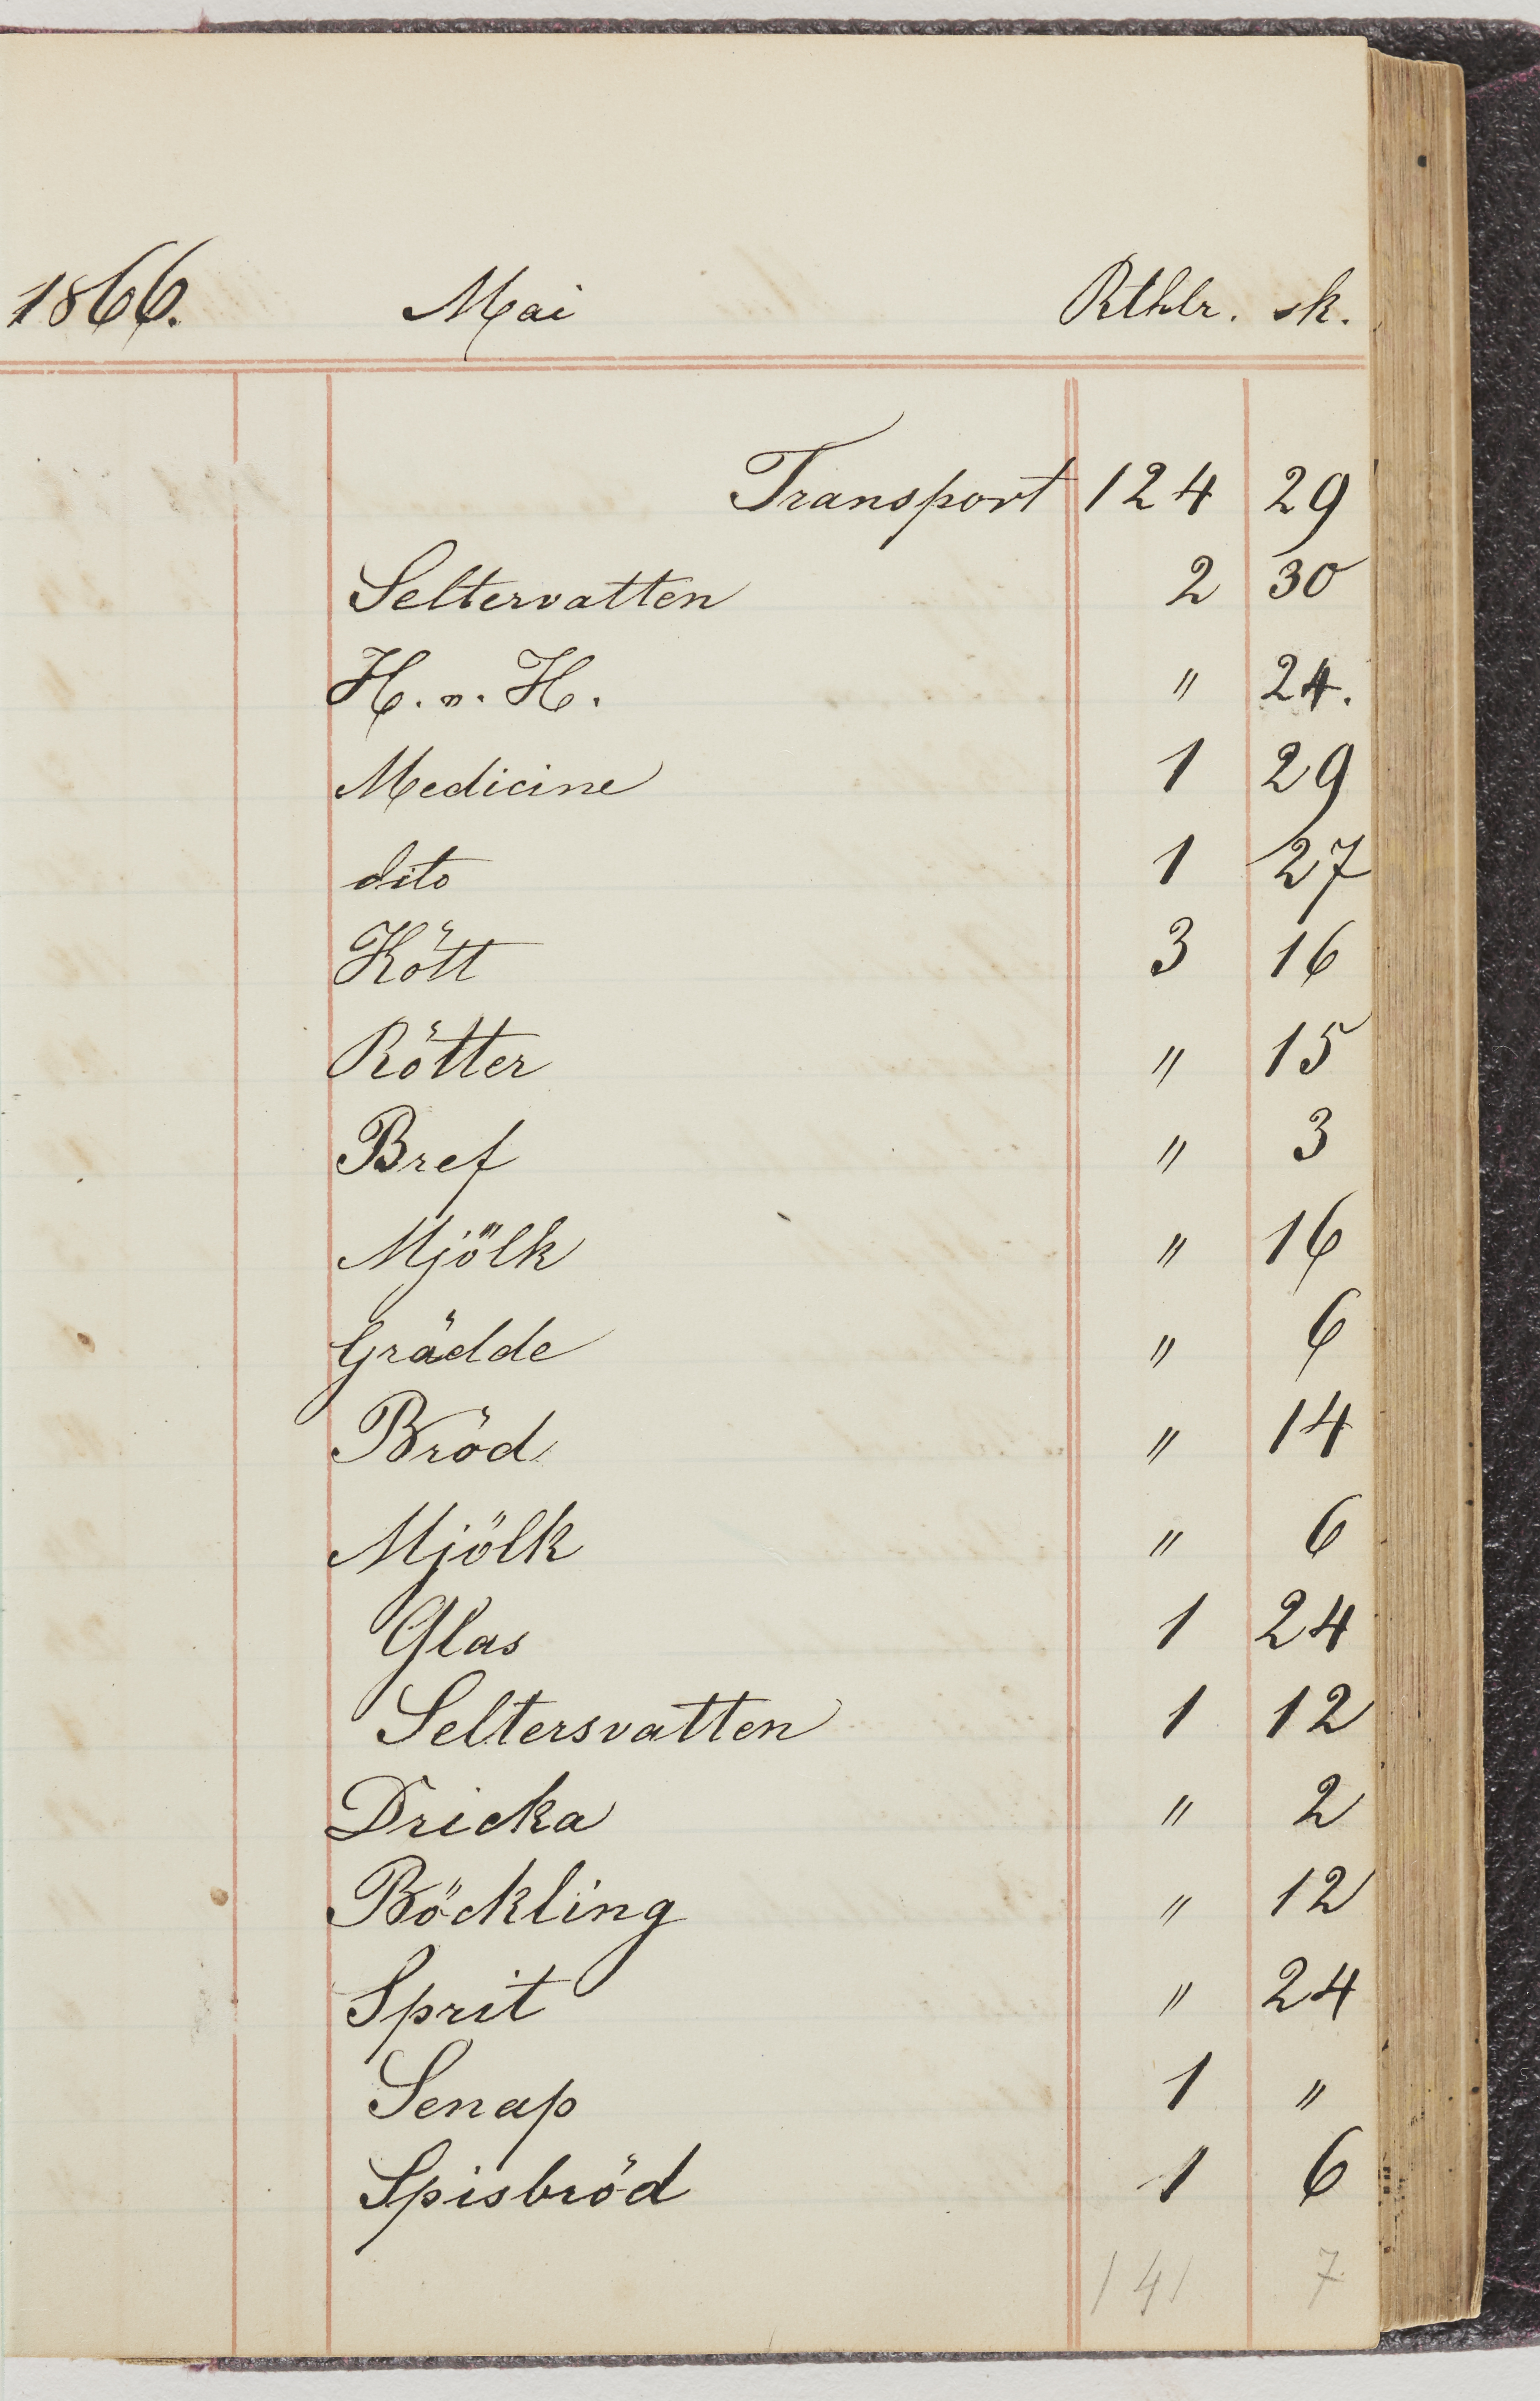 1866. Mai Rthlr. sk.
Transport 124 29
Seltervatten 2 30
H. n. H. " 24.
Medicine 1 29
dito 1 27
Kött 3 16
Rötter " 15
Bref " 3
Mjölk " 16
Grädde " 6
Bröd " 14
Mjölk " 6
Glas 1 24
Seltersvatten 1 12
Dricka " 2
Böckling " 12
Sprit " 24
Senap 1 "
Spisbröd 1 6
141 7